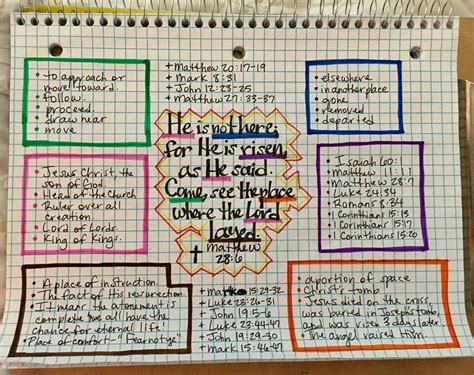 • to approach or
move toward.
• follow.
• proceed.
• draw near
• move
+ Matthew 20:17-19
+ Mark 8:31
+ John 12:23-25
+ Matthew 27:33-37
• elsewhere
• in another place
• gone
• removed
• departed
He is not here;
for He is risen,
as He said.
Come, see the place
where the Lord
layed.
Matthew
28:6
• Jesus Christ, the
son of God.
• Head of the Church
• Ruler over all
creation.
• Lord of Lords.
• King of Kings.
• Isaiah 60:1
• Matthew 11:11
• Matthew 28:7
• Luke 24:34
• Romans 8:34
• 1 Corinthians 15:13
• 1 Corinthians 15:20
• A place of instruction.
• The fact of His resurrection
It means the atonement is
complete & we all have the
chance for eternal life!
• Place of comfort-"Fear not ye"
+ Mark 15:29-32
+ Luke 23:26-31
+ John 19:5-6
+ Luke 23:44-47
+ John 19:29-30
+ Mark 15:46-47
• a portion of space
• Christ's tomb
• Jesus died on the cross,
was buried in Josephs tomb,
and was risen 3 days later
• The angel raised Him